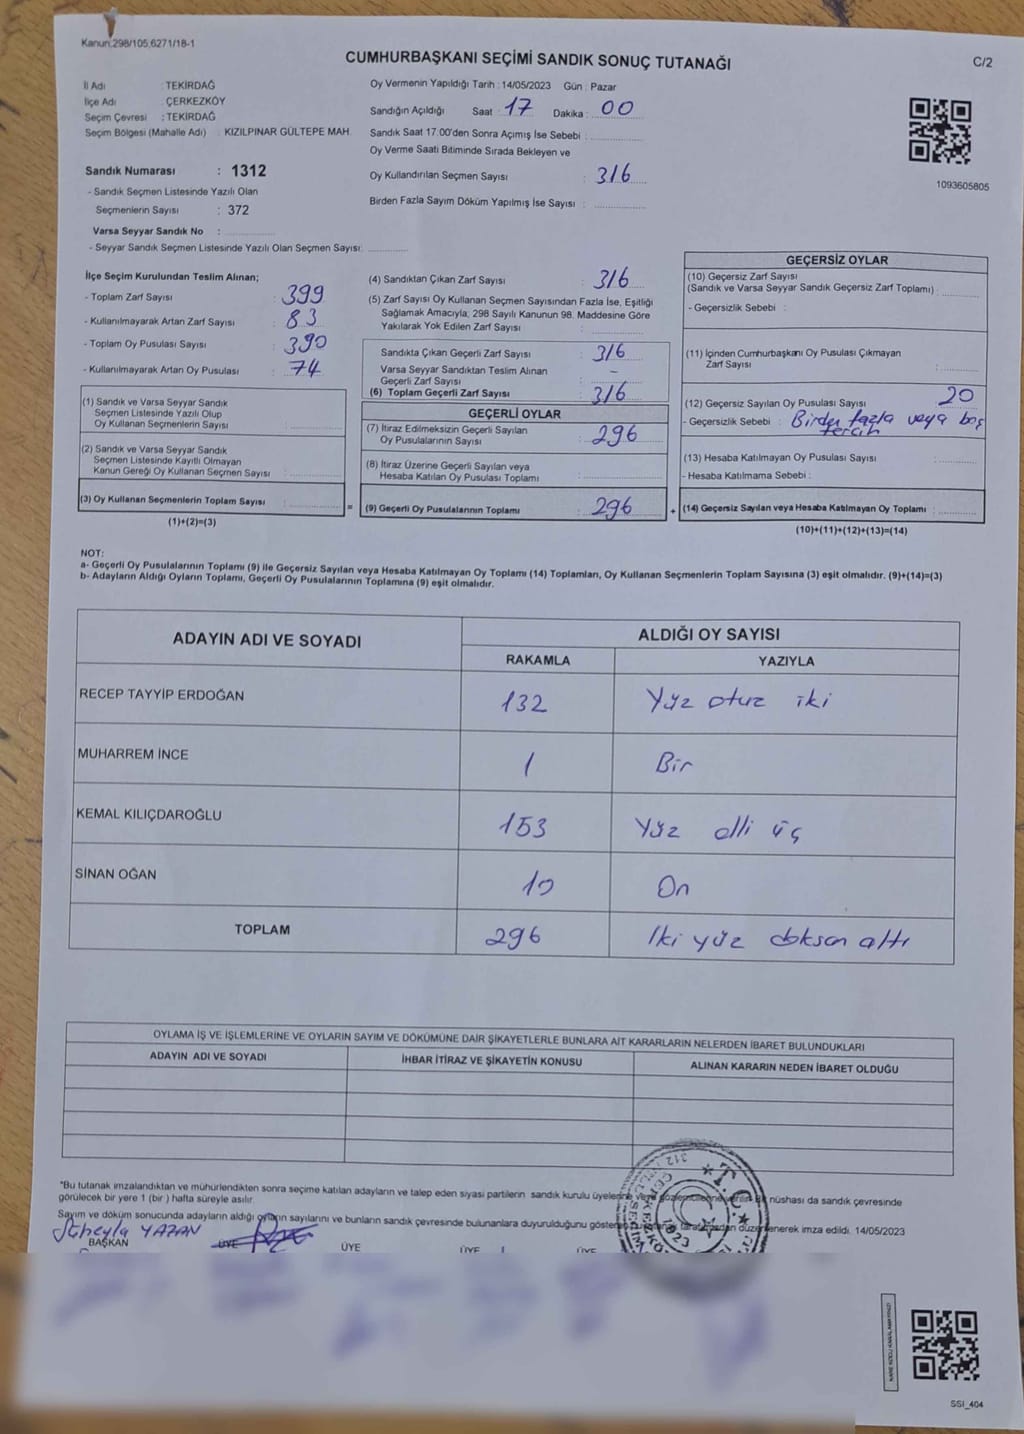 Kanun:298/105,6271/18-1
CUMHURBAŞKANI SEÇİMİ SANDIK SONUÇ TUTANAĞI
C/2
İl Adı : TEKİRDAĞ
İlçe Adı : ÇERKEZKÖY
Seçim Çevresi : TEKİRDAĞ
Seçim Bölgesi (Mahalle Adı) : KIZILPINAR GÜLTEPE MAH.
Sandık Numarası : 1312
- Sandık Seçmen Listesinde Yazılı Olan
Seçmenlerin Sayısı : 372
Varsa Seyyar Sandık No :
- Seyyar Sandık Seçmen Listesinde Yazılı Olan Seçmen Sayısı:
Oy Vermenin Yapıldığı Tarih : 14/05/2023 Gün : Pazar
Sandığın Açıldığı Saat : 17 Dakika : 00
Sandık Saat 17.00'den Sonra Açımış İse Sebebi :
Oy Verme Saati Bitiminde Sırada Bekleyen ve
Oy Kullandırılan Seçmen Sayısı : 316
Birden Fazla Sayım Döküm Yapılmış İse Sayısı :
1093605805
İlçe Seçim Kurulundan Teslim Alınan;
- Toplam Zarf Sayısı : 399
- Kullanılmayarak Artan Zarf Sayısı : 83
- Toplam Oy Pusulası Sayısı : 390
- Kullanılmayarak Artan Oy Pusulası : 74
(1) Sandık ve Varsa Seyyar Sandık
Seçmen Listesinde Yazılı Olup
Oy Kullanan Seçmenlerin Sayısı :
(2) Sandık ve Varsa Seyyar Sandık
Seçmen Listesinde Kayıtlı Olmayan
Kanun Gereği Oy Kullanan Seçmen Sayısı :
(3) Oy Kullanan Seçmenlerin Toplam Sayısı :
(1)+(2)=(3)
(4) Sandıktan Çıkan Zarf Sayısı : 316
(5) Zarf Sayısı Oy Kullanan Seçmen Sayısından Fazla İse, Eşitliği
Sağlamak Amacıyla, 298 Sayılı Kanunun 98. Maddesine Göre
Yakılarak Yok Edilen Zarf Sayısı :
Sandıkta Çıkan Geçerli Zarf Sayısı : 316
Varsa Seyyar Sandıktan Teslim Alınan
Geçerli Zarf Sayısı : -
(6) Toplam Geçerli Zarf Sayısı : 316
GEÇERLİ OYLAR
(7) İtiraz Edilmeksizin Geçerli Sayılan
Oy Pusulalarının Sayısı : 296
(8) İtiraz Üzerine Geçerli Sayılan veya
Hesaba Katılan Oy Pusulası Toplamı :
= (9) Geçerli Oy Pusulalarının Toplamı : 296
GEÇERSİZ OYLAR
(10) Geçersiz Zarf Sayısı
(Sandık ve Varsa Seyyar Sandık Geçersiz Zarf Toplamı) :
- Geçersizlik Sebebi :
(11) İçinden Cumhurbaşkanı Oy Pusulası Çıkmayan
Zarf Sayısı :
(12) Geçersiz Sayılan Oy Pusulası Sayısı : 20
- Geçersizlik Sebebi : Birden fazla veya boş
tercih
(13) Hesaba Katılmayan Oy Pusulası Sayısı :
- Hesaba Katılmama Sebebi :
+ (14) Geçersiz Sayılan veya Hesaba Katılmayan Oy Toplamı :
(10)+(11)+(12)+(13)=(14)
NOT:
a- Geçerli Oy Pusulalarının Toplamı (9) ile Geçersiz Sayılan veya Hesaba Katılmayan Oy Toplamı (14) Toplamları, Oy Kullanan Seçmenlerin Toplam Sayısına (3) eşit olmalıdır. (9)+(14)=(3)
b- Adayların Aldığı Oyların Toplamı, Geçerli Oy Pusulalarının Toplamına (9) eşit olmalıdır.
ADAYIN ADI VE SOYADI
ALDIĞI OY SAYISI
RAKAMLA YAZIYLA
RECEP TAYYİP ERDOĞAN 132 Yüz otuz iki
MUHARREM İNCE 1 Bir
KEMAL KILIÇDAROĞLU 153 Yüz elli üç
SİNAN OĞAN 10 On
TOPLAM 296 İki yüz doksan altı
OYLAMA İŞ VE İŞLEMLERİNE VE OYLARIN SAYIM VE DÖKÜMÜNE DAİR ŞİKAYETLERLE BUNLARA AİT KARARLARIN NELERDEN İBARET BULUNDUKLARI
ADAYIN ADI VE SOYADI İHBAR İTİRAZ VE ŞİKAYETİN KONUSU ALINAN KARARIN NEDEN İBARET OLDUĞU
"Bu tutanak imzalandıktan ve mühürlendikten sonra seçime katılan adayların ve talep eden siyasi partilerin sandık kurulu üyelerine veya bir nüshası da sandık çevresinde
görülecek bir yere 1 (bir) hafta süreyle asılır.
Sayım ve döküm sonucunda adayların aldığı oyların sayılarını ve bunların sandık çevresinde bulunanlara duyurulduğunu gösteren imza edildi. 14/05/2023
Süheyla YAZAN
BAŞKAN ÜYE ÜYE ÜYE ÜYE
T.C.
1312
ÇERKEZKÖY
2023
SSİ_404